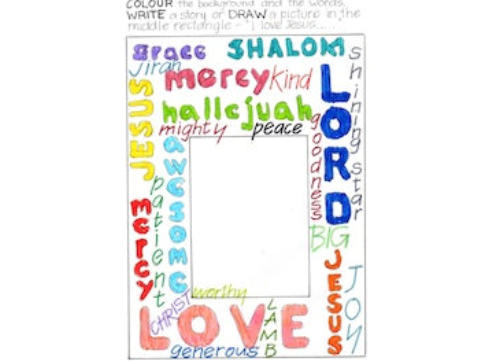 COLOUR the background and the words.
WRITE a story or DRAW a picture in the
middle rectangle - "I love Jesus.....
grace
SHALOM
shining star
Jirah
mercy
kind
JESUS
LORD
hallelujah
mighty
peace
goodness
awesome
patient
mercy
BIG
JESUS
JOY
worthy
CHRIST
LOVE
LAMB
generous